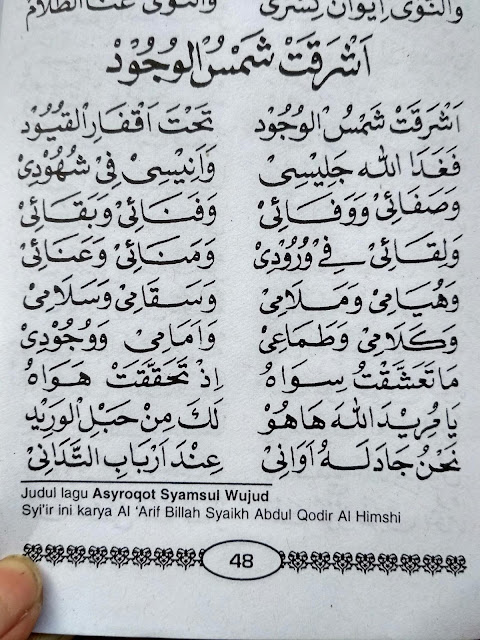 وَالْتَوٰى اِيْوَانُ كِسْرٰى وَالتَّوٰى عَنَّا الظَّلَامُ
اَشْرَقَتْ شَمْسُ الْوُجُوْدْ
اَشْرَقَتْ شَمْسُ الْوُجُوْدْ تَحْتَ اَقْفَارِ الْقُيُوْدْ
فَغَدَا اللهُ جَلِيْسِيْ وَاَنِيْسِيْ فِيْ شُهُوْدِيْ
وَصَفَائِيْ وَوَفَائِيْ وَفَنَائِيْ وَبَقَائِيْ
وَلِقَائِيْ فِيْ وُرُوْدِيْ وَمَنَائِيْ وَعَنَائِيْ
وَهُيَامِيْ وَمَلَامِيْ وَسَقَامِيْ وَسَلَامِيْ
وَكَلَامِيْ وَطَمَاعِيْ وَاِمَامِيْ وَوُجُوْدِيْ
مَا تَعَشَّقْتُ سِوَاهُ اِذْ تَحَقَّقَتْ هَوَاهُ
يَا مُرِيْدَ اللهَ هَا هُوْ لَكَ مِنْ حَبْلِ الْوَرِيْدِ
نَحْنُ جَادَلَهُ اَوَانِيْ عِنْدَ اَرْبَابِ التَّدَانِيْ
Judul lagu Asyroqot Syamsul Wujud
Syi'ir ini karya Al 'Arif Billah Syaikh Abdul Qodir Al Himshi
48